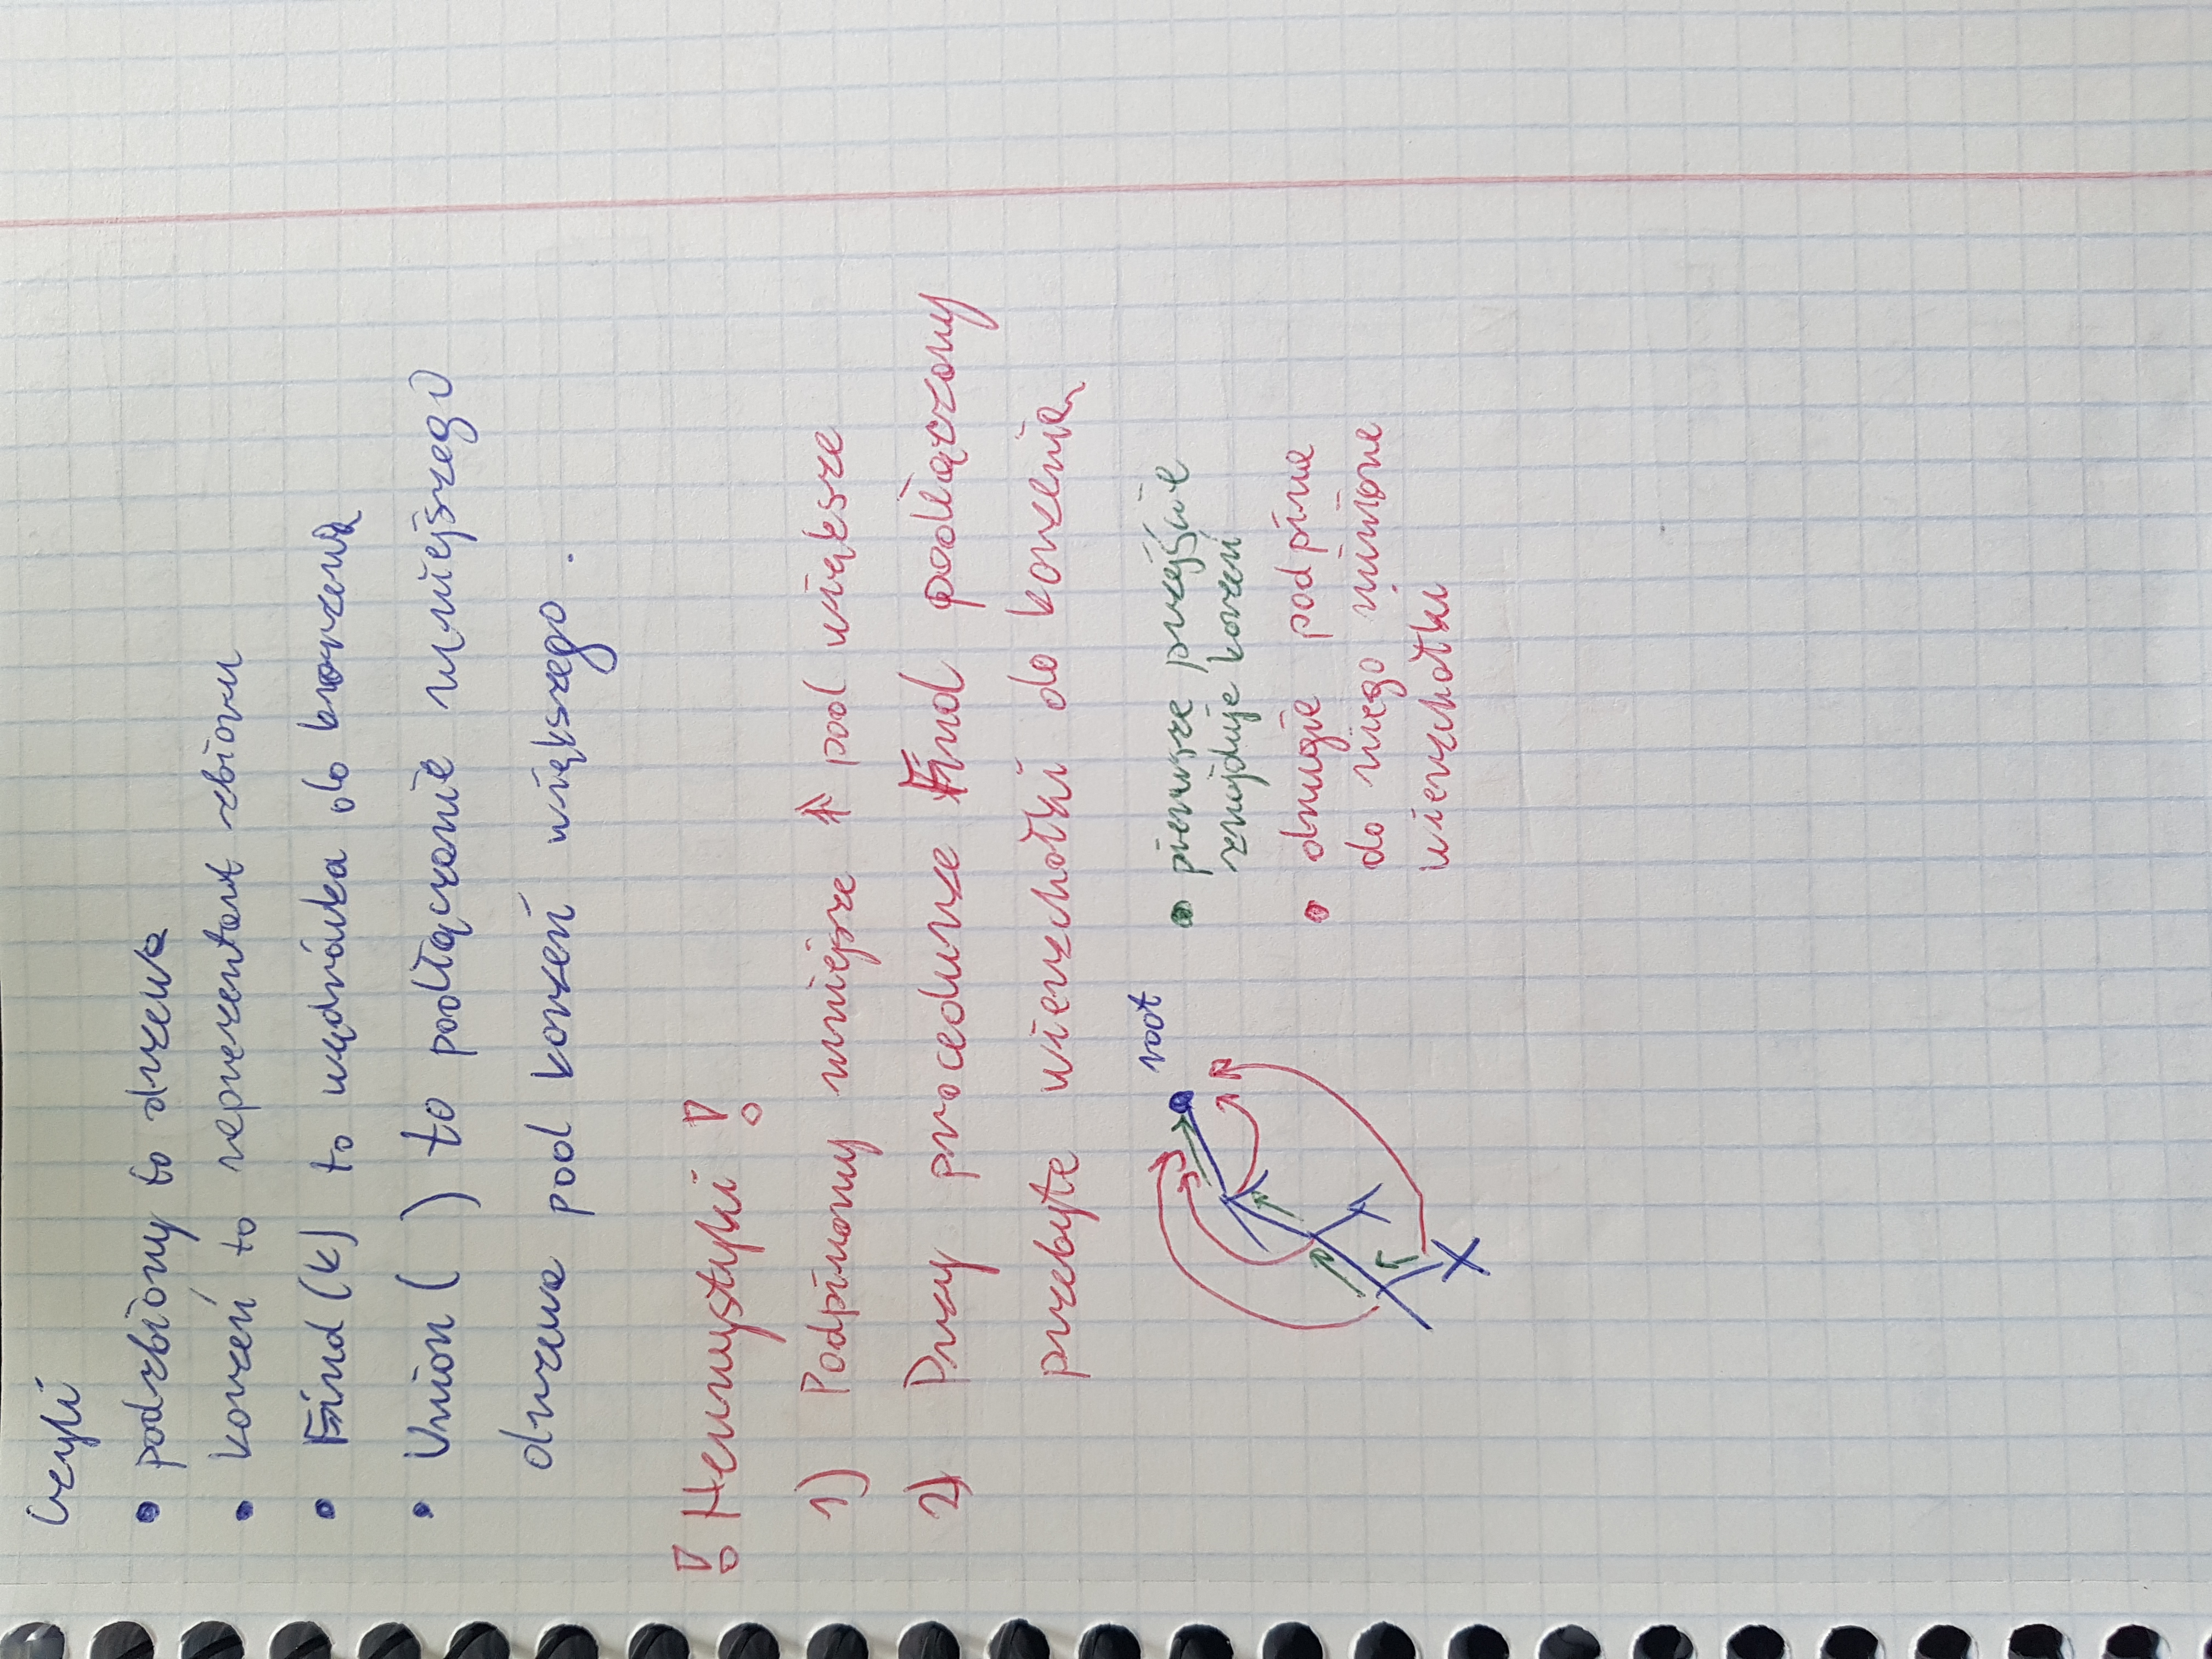 Czyli
• podzbiory to drzewa
• korzeń to reprezentant zbioru
• Find (k) to wędrówka do korzenia
• Union ( ) to podłączanie mniejszego
drzewa pod korzeń większego.
! Heurystyki !
1) Podpinamy mniejsze pod większe
2) Przy procedurze Find podłączamy
przebyte wierzchołki do korzenia
root
• pierwsze przejście
znajduje korzeń
• drugie podpina
do niego minione
wierzchołki
X